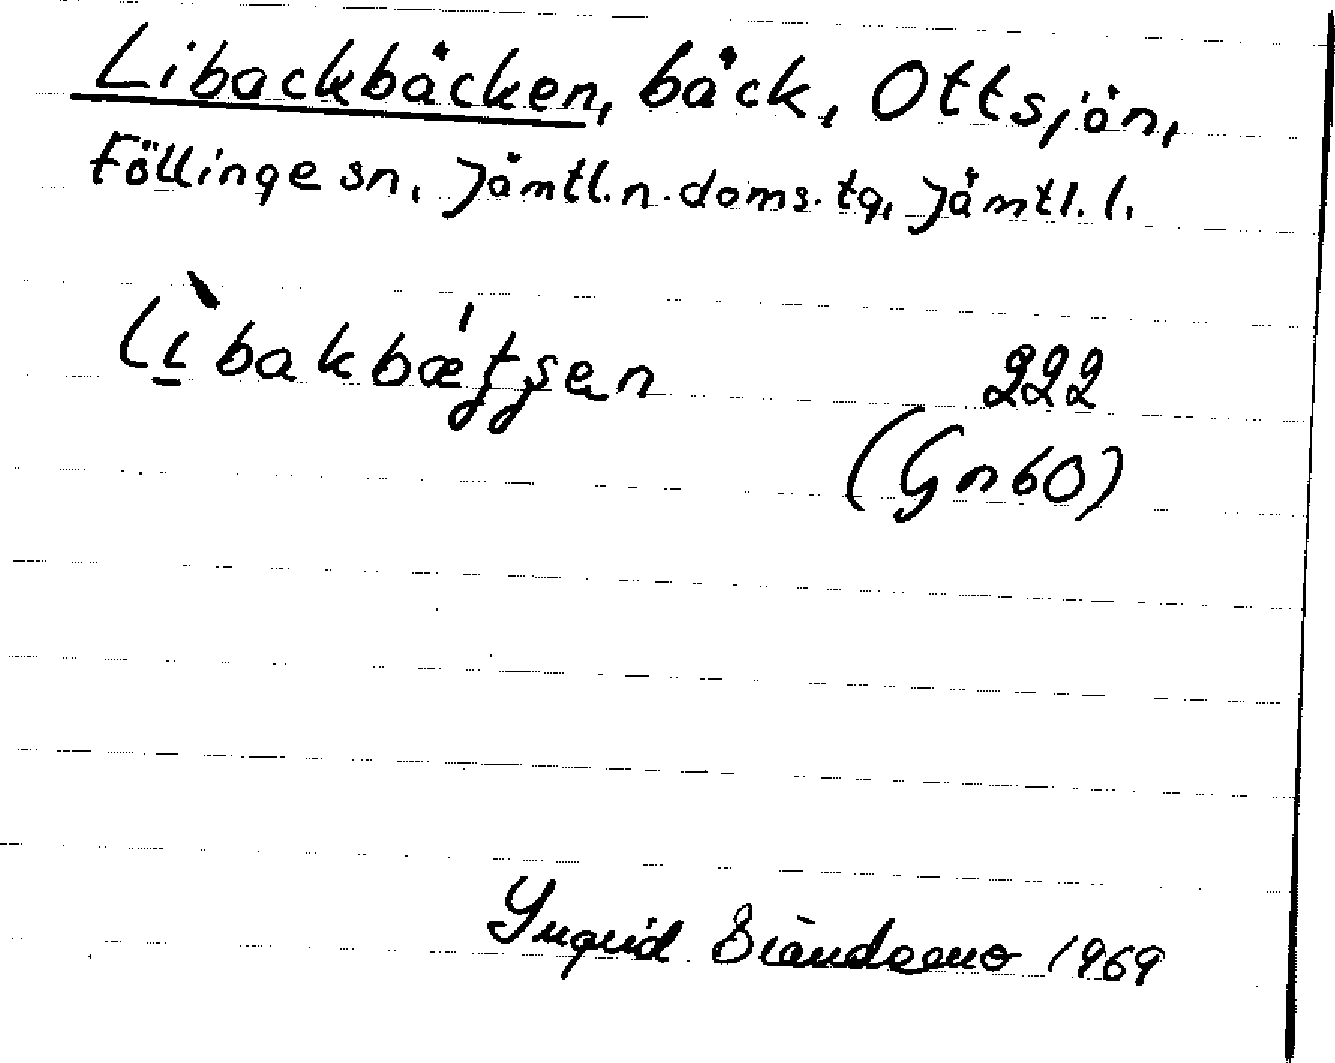 Libackbäcken, bäck, Ottsjön,
Föllinge sn, Jämtl. n. doms. tg, Jämtl. l.
lìbakbǽtʃen 222
(Gn60)
Ingrid 1969